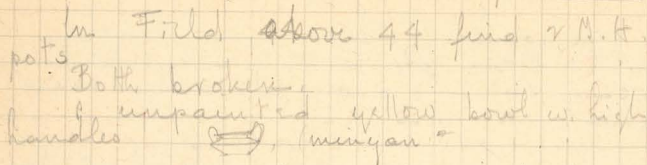 In Field above 44 find 2 M.H.
pots
Both broken.
1 unpainted yellow bowl w. high
handles "minyan"